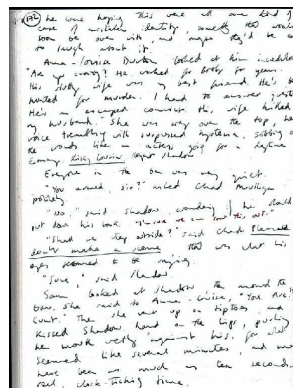 he were hoping this were all some kind of
case of mistaken identity, something that would
soon be over with, and maybe they'd be able
to laugh about it.
Anna-Louise Durkin looked at him incredulously
"Are you crazy? He worked for Bobby for years.
This wife was my best friend. He's
hunted for murder. I had to answer
He's an escaped convict. His wife
my husband." She was way over the top, her
voice trembling with suppressed hysteria, sobbing out
the words like an actress going for a daytime
Emmy.
Everyone in the bar was very quiet.
"You armed, sir?" asked Chad Mulligan
politely
"No," said Shadow, wondering if he should
put down his book.
"Shall we step outside?" said Chad
don't make a scene that was what his
eyes seemed to be saying.
"Sure," said Shadow
Sam looked at Shadow then around the
bar. She said to Anna-Louise, "You Are A
Cunt." Then she went up on tiptoes, and
kissed Shadow hard on the lips, pushing
her mouth against his, for what
seemed like several minutes, and
have been as much as ten seconds
real, clock-ticking time.